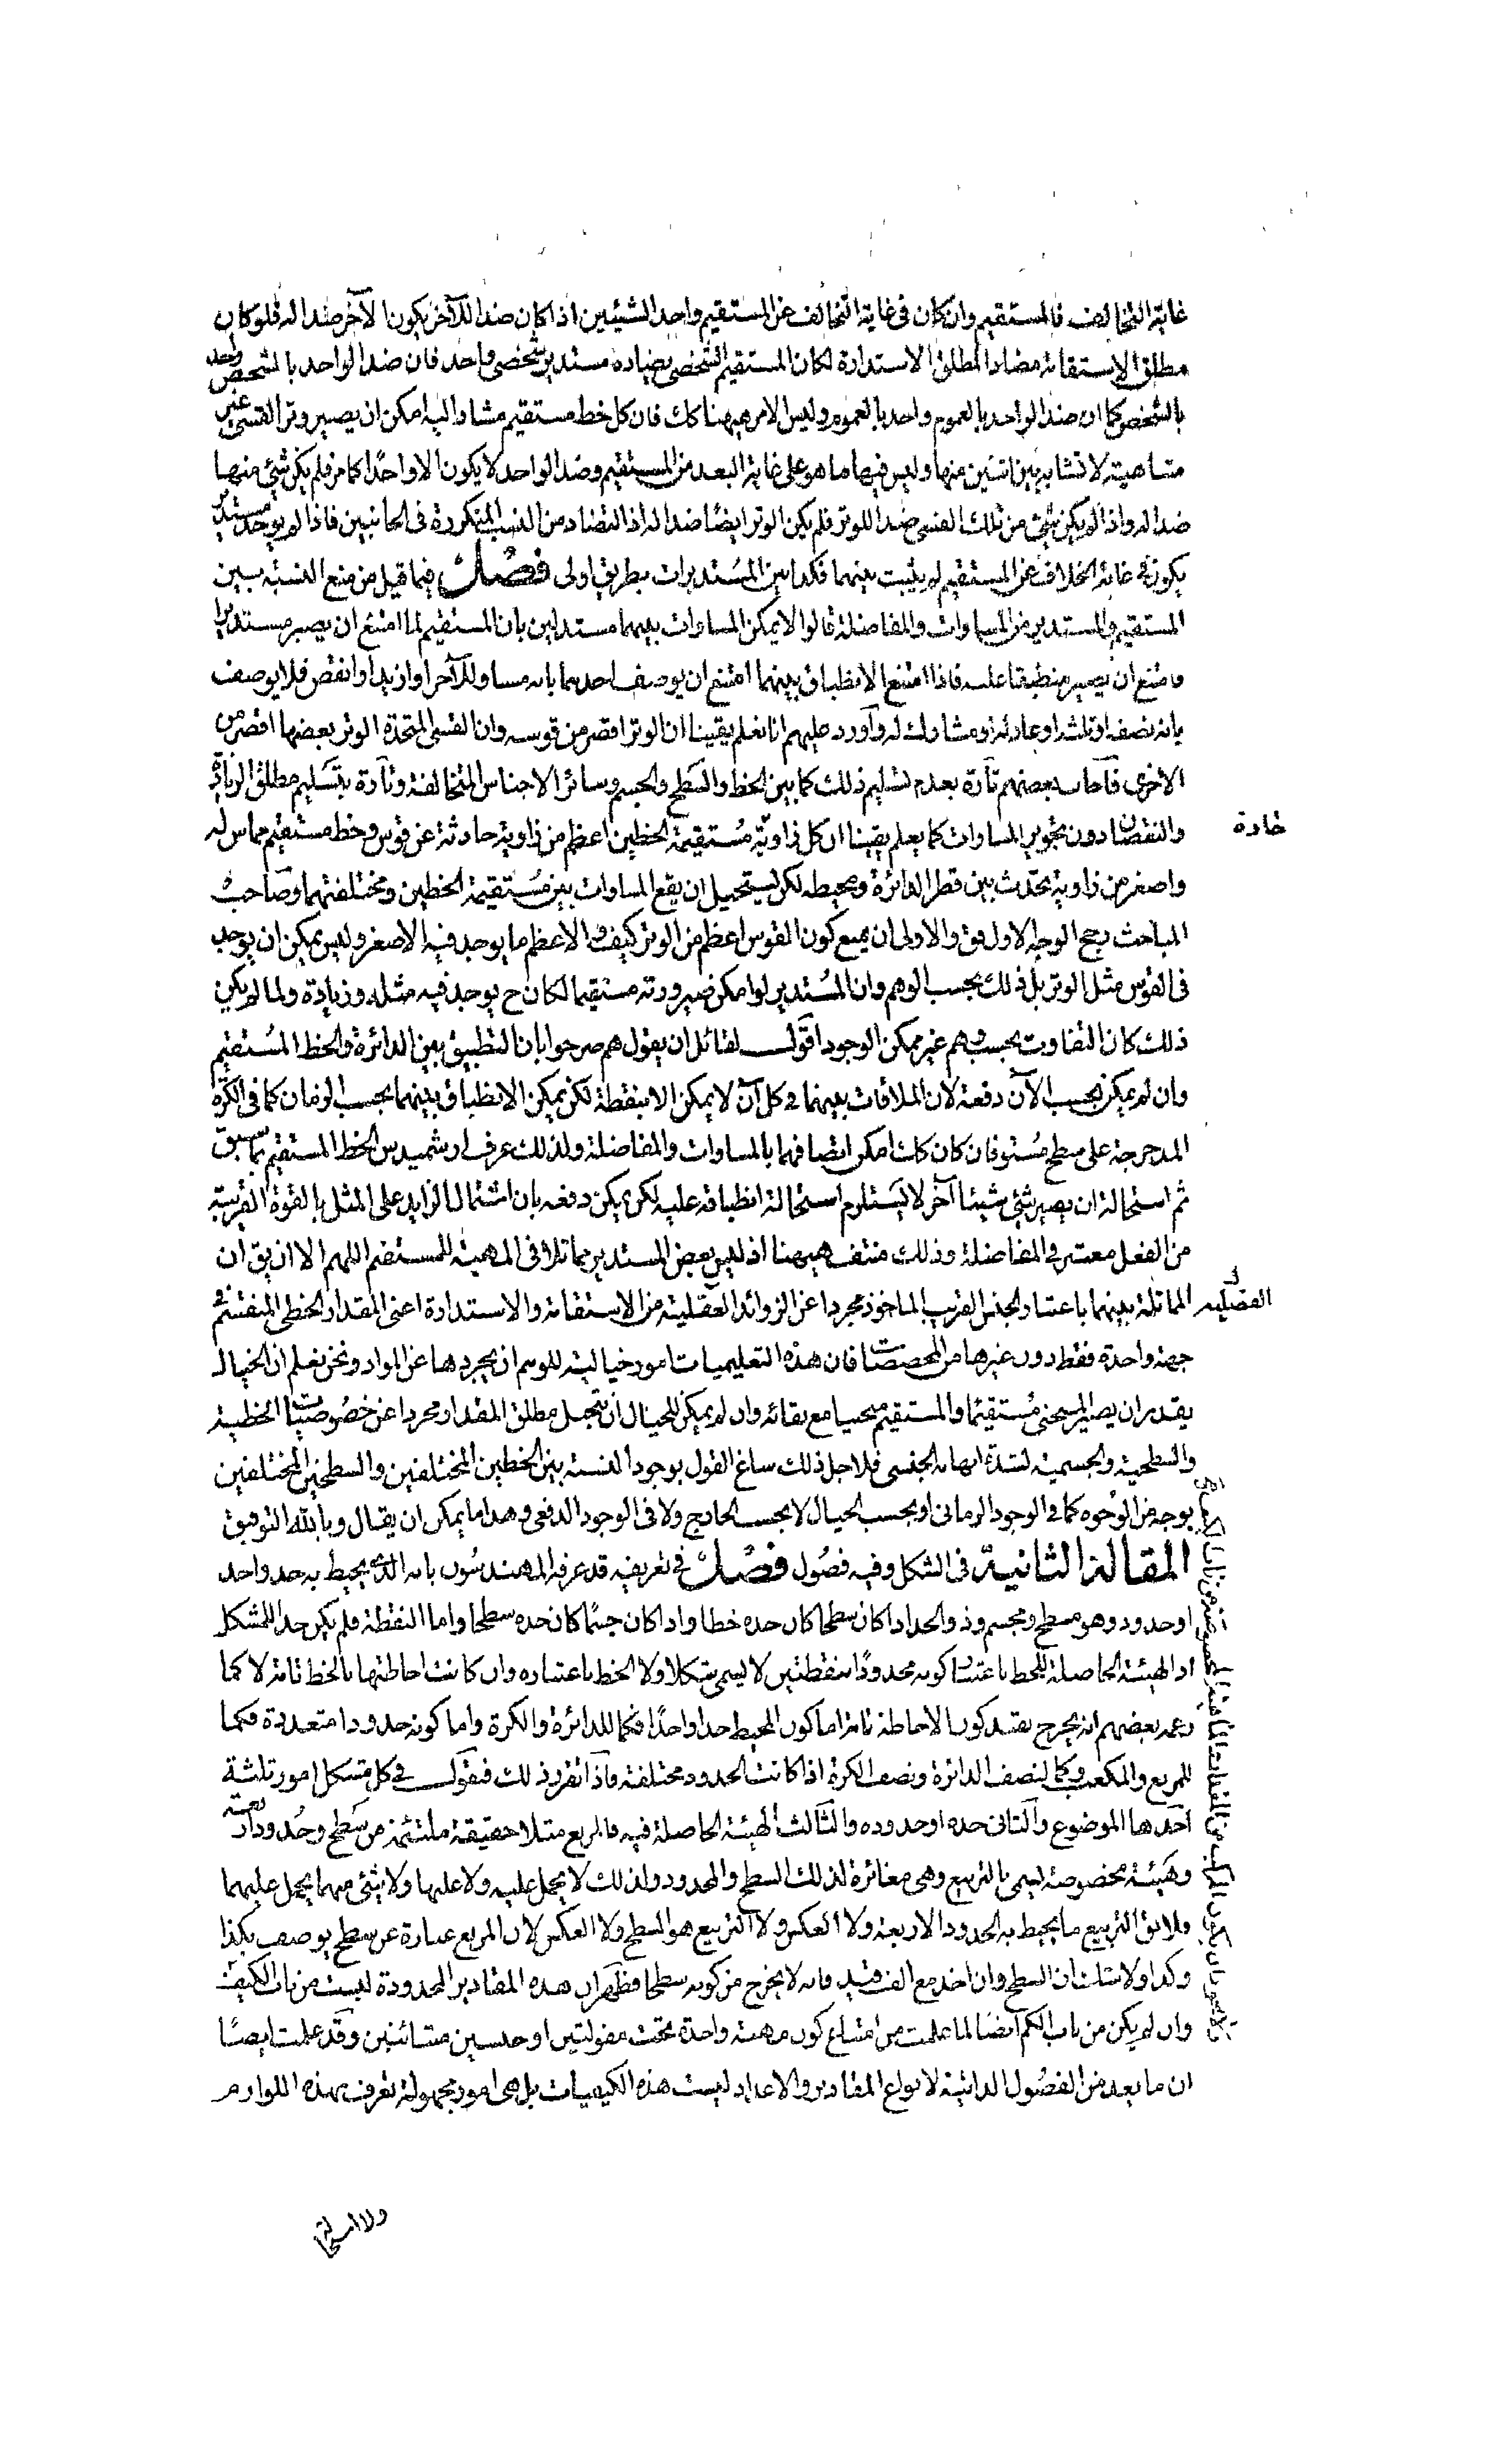 غاية التخالف فالمستقيم وان كان فى غاية التخالف عن المستقيم واحد الشيئين اذا كان ضدا للآخر يكون الآخر ضدا له فلو كان
مطلق الاستقامة مضادا لمطلق الاستدارة لكان المستقيم الشخصى يضاده مستدير شخصى واحد فان ضد الواحد بالشخص واحد
بالشخص كما ان ضد الواحد بالعموم واحد بالعموم وليس الامر ههنا كك فان كل خط مستقيم مشار اليه امكن ان يصير وتر القسى غير
متناهية لا تشابه بين اثنين منها وليس فيها ما هو على غاية البعد من المستقيم وضد الواحد لا يكون الا واحدا كما مر فلم يكن شئ منها
ضدا له واذا لم يكن شئ من تلك القسى ضدا للوتر فلم يكن الوتر ايضا ضدا له اذ التضاد من النسب المتكررة فى الجانبين فاذا لم يوجد مستدير
يكون فى غاية الخلاف عن المستقيم لم يثبت بينهما فكذا بين المستديرات بطريق اولى فصل فيما قيل من منع النسبة بين
المستقيم والمستدير من المساوات والمفاضلة قالوا لا يمكن المساوات بينهما مستدلين بان المستقيم لما امتنع ان يصير مستديرا
وامتنع ان يصير منطبقا عليه فاذا امتنع الانطباق بينهما امتنع ان يوصف احدهما بانه مساو للآخر او ازيد او انقص فلا يوصف
بانه نصفه او ثلثه او عاد له او مشارك له وآورد عليهم انا نعلم يقينا ان الوتر اقصر من قوسه وان القسى المتحدة الوتر بعضها اقصر من
الاخرى فآجاب بعضهم تآرة بعدم تسليم ذلك كما بين الخط والسطح والجسم وسائر الاجناس المتخالفة وتآرة بتسليم مطلق الزيادة
والنقصان دون تجويز المساوات كما يعلم يقينا ان كل زاوية مستقيمة الخطين اعظم من زاوية حادثة عن قوس وخط مستقيم مماس له
حادة
واصغر من زاوية يحدث بين قطر الدائرة ومحيطه لكن يستحيل ان يقع المساوات بين مستقيمة الخطين ومختلفتهما وصاحب
المباحث رجح الوجه الاول فق والاولى ان يمنع كون القوس اعظم من الوتر كيف والاعظم ما يوجد فيه الاصغر وليس يمكن ان يوجد
فى القوس مثل الوتر بل ذلك بحسب الوهم وان المستدير لو امكن صيرورته مستقيما لكان ح يوجد فيه مثله وزيادة ولما لم يكن
ذلك كان التفاوت بحسب وهم غير ممكن الوجود اقول لقائل ان يقول هم صرحوا بان التطبيق بين الدائرة والخط المستقيم
وان لم يمكن بحسب الآن دفعة لان الملاقات بينهما فى كل آن لا يمكن الا بنقطة لكن يمكن الانطباق بينهما بحسب الزمان كما فى الكرة
المدحرجة على سطح مستو فان كان كك امكن اتصافهما بالمساوات والمفاضلة ولذلك عرف ارشميدس الخط المستقيم بما سبق
ثم استحالة ان يصير شئ شيئا آخر لا يستلزم استحالة انطباقه عليه لكن يمكن دفعه بان اشتمال الزايد على المثل بالقوة القريبة
من الفعل معتبر فى المفاضلة وذلك منتف ههنا اذ ليس بعض المستدير مماثلا فى المهية للمستقيم اللهم الا ان يق ان
المماثلة بينهما باعتبار الجنس القريب الماخوذ مجردا عن الزوائد العقلية من الاستقامة والاستدارة اعنى المقدار الخطى المنقسم فى
الفصلية
جهة واحدة فقط دون غيرها من المخصصات فان هذه التعليميات امور خيالية للوهم ان يجردها عن المواد ونحن نعلم ان الخيال
يقدر ان يصير المنحنى مستقيما والمستقيم منحنيا مع بقائه وان لم يمكن للخيال ان يتخيل مطلق المقدار مجردا عن خصوصيتنا الخطية
والسطحية والجسمية لشدة ابهامه الجنسى فلاجل ذلك ساغ القول بوجود النسبة بين الخطين المختلفين والسطحين المختلفين
بوجه من الوجوه كما فى الوجود الزمانى او بحسب الخيال لا بحسب الخارج ولا فى الوجود الدفعى وهذا ما يمكن ان يقال وبالله التوفيق
المقالة الثانية فى الشكل وفيه فصول فصل فى تعريفه قد عرفه المهندسون بانه الذى يحيط به حد واحد
او حدود وهو مسطح ومجسم وذو الحد اذا كان سطحا كان حده خطا واذا كان جسما كان حده سطحا واما النقطة فلم يكن حدا للشكل
اذ الهيئة الحاصلة للخط باعتبار كونه محدودا بنقطتين لا يسمى شكلا ولا الخط باعتباره وان كانت احاطتها بالخط تامة لا كما
زعمه بعضهم انه يخرج بقيد كون الاحاطة تامة اما كون المحيط حدا واحدا فكما للدائرة والكرة واما كونه حدودا متعددة فكما
للمربع والمكعب وكما لنصف الدائرة ونصف الكرة اذا كانت الحدود مختلفة فآذا تقرر ذلك فنقول فى كل متشكل امور ثلثة
آحدها الموضوع والثانى حده او حدوده والثالث الهيئة الحاصلة فيه فالمربع مثلا حقيقة ملتئمة من سطح وحدود اربعة
وهيئة مخصوصة يسمى بالتربيع وهى مغائرة لذلك السطح والحدود ولذلك لا يحمل عليه ولا عليها ولا شئ منهما يحمل عليهما
فلا يق التربيع ما يحيط به الحدود الاربعة ولا العكس ولا التربيع هو السطح ولا العكس لان المربع عبارة عن سطح يوصف بكذا
وكذا ولا شك ان السطح وان اخذ مع الف قيد فانه لا يخرج من كونه سطحا فظهر ان هذه المقادير المحدودة ليست من باب الكيف
وان لم يكن من باب الكم آيضا لما علمت من امتناع كون مهية واحدة تحت مقولتين او جنسين متباينين وقد علمت ايضا
ان ما بعد من الفصول الذاتية لانواع المقادير والاعداد ليست هذه الكيفيات بل هى امور مجهولة تعرف بهذه اللوازم
ولا استحالة